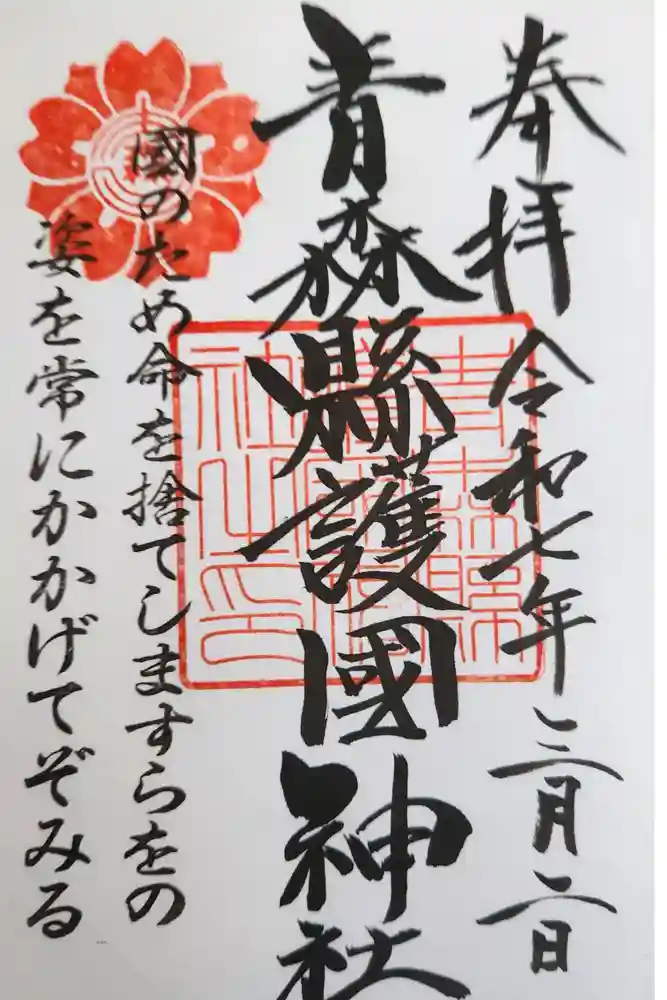 奉拝 令和七年三月二日
青森縣護國神社
國のため命を捨てしますらをの
姿を常にかかげてぞみる
青森縣護國神社之印